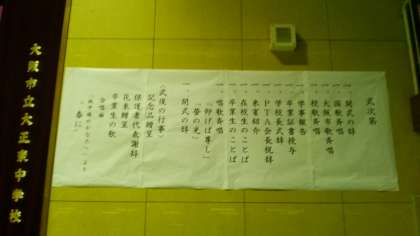 式次第
一、開式の辞
一、国歌斉唱
一、大阪市歌斉唱
一、校歌斉唱
一、学事報告
一、卒業証書授与
一、学校長式辞
一、PTA会長祝辞
一、来賓紹介
一、在校生のことば
一、卒業生のことば
一、唱歌斉唱
「仰げば尊し」
「蛍の光」
一、閉式の辞
〈式後の行事〉
記念品贈呈
保護者代表謝辞
花束贈呈
卒業生の歌
合唱曲
より
「春に」
大阪市立大正東中学校